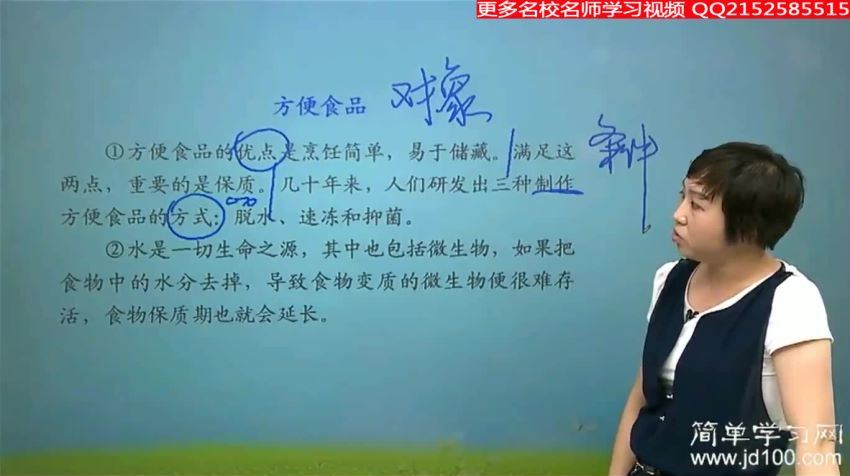 更多名校名师学习视频 QQ2152585515
方便食品 对象
①方便食品的优点是烹饪简单,易于储藏。满足这
条件
两点,重要的是保质。几十年来,人们研发出三种制作
方便食品的方式:脱水、速冻和抑菌。
②水是一切生命之源,其中也包括微生物,如果把
食物中的水分去掉,导致食物变质的微生物便很难存
活,食物保质期也就会延长。
简单学习网
www.jd100.com